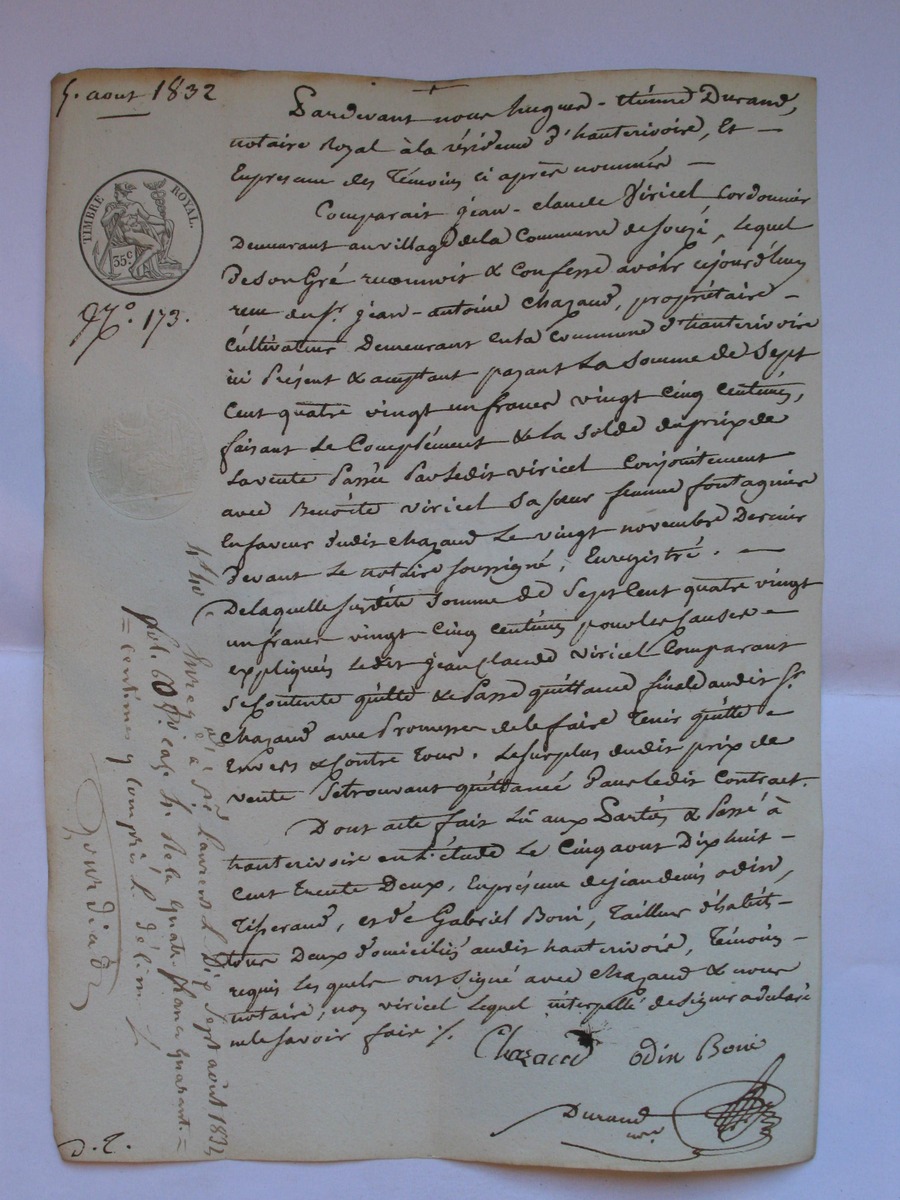 5. aout 1832
TIMBRE ROYAL.
35 c
N.º 173.
Pardevant nous hugues-étienne Durand,
notaire Royal à la résidence d'hauterivoire, Et
En presence des Témoins ci après nommés
Comparait jean-claude Viricel Cordonnier
Demeurant au village de la Commune de souzé, Lequel
De son Gré reconnoit & Confesse avoir cejourd'huy
reçu du Sr. jean-antoine Chazaud, propriétaire
Cultivateur Demeurant en la Commune d'hauterivoire
ici Présent & acceptant payant La Somme de Sept
Cent quatre vingt un francs vingt Cinq Centimes,
faisant Le Complément & la Solde du prix de
La vente Passée Par Ledit viricel Conjointement
avec Benoîte viricel Sa sœur femme fontagnier
En faveur dudit Chazaud Le vingt novembre Dernier
Devant Le notaire soussigné, Enregistré.
De laquelle susdite Somme de Sept Cent quatre vingt
un francs vingt Cinq centimes pour les Causes
expliquées Ledit jean claude viricel Comparant
Se Contente quitte & Passe quittance finale audit Sr.
Chazaud avec Promesse de le faire Tenir quitte
Envers & Contre Tous. Le surplus dudit prix de
vente Se trouvant quittancé Dans Ledit Contract.
Dont acte fait Lu aux Parties & Passé à
hauterivoire en L'étude Le Cinq aout Dix huit
Cent Trente Deux, En présence de jean denis odin,
Tisserand, et de Gabriel Boni, Tailleur d'habits
tous Deux Domiciliés audit hauterivoire, Témoins
requis Les quels ont signé avec Chazaud & nous
notaire, non viricel Lequel interpellé de signer a declaré
ne le savoir faire ./.
Chazaud odin Boni
Durand
nre
Enreg à St Laurent L Dix Sept août 1832
fol. 60
quatre francs quarante
= centimes y Compris L. décime
Gourdiad
D. T.